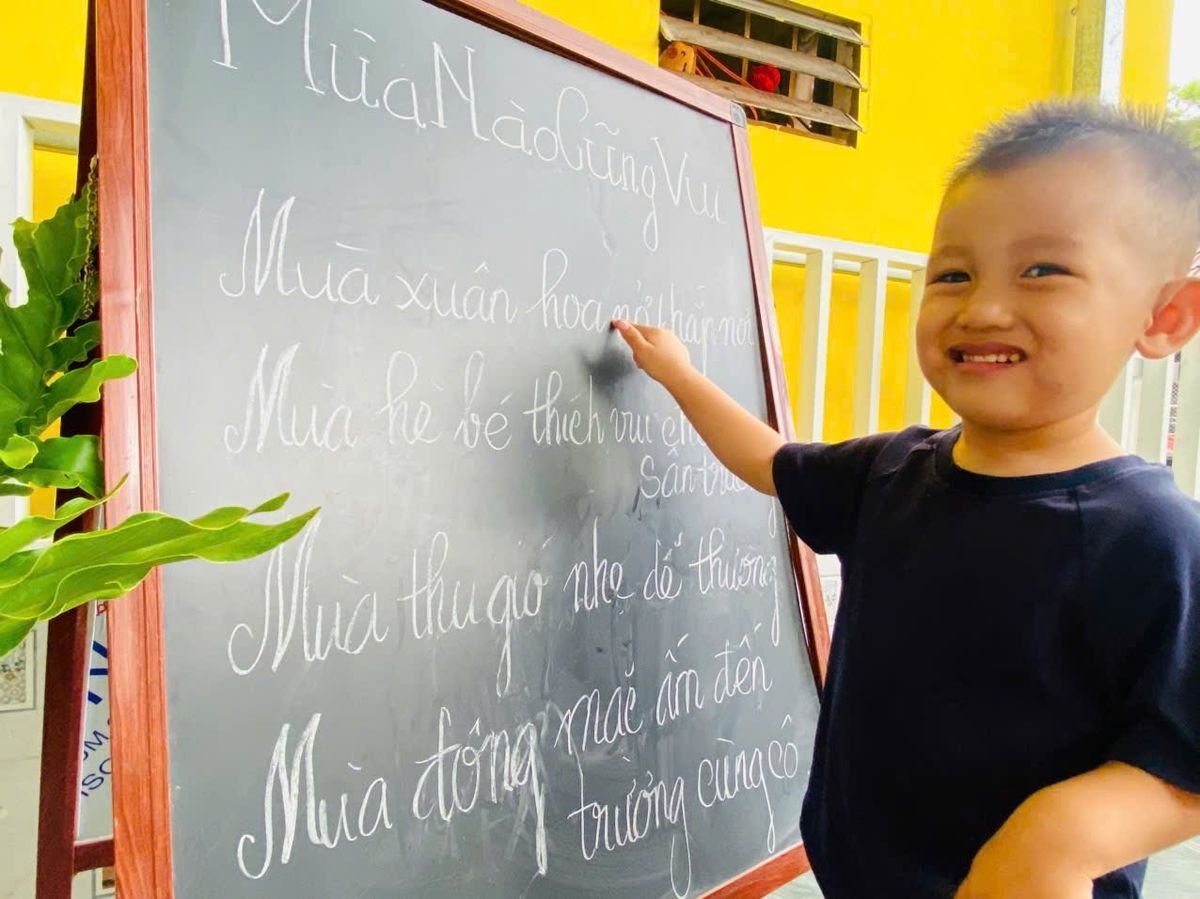 Mùa Nào Cũng Vui
Mùa xuân hoa nở khắp nơi
Mùa hè bé thích vui
sân
Mùa thu gió nhẹ dễ thương
Mùa đông mặc ấm đến
trường cùng cô